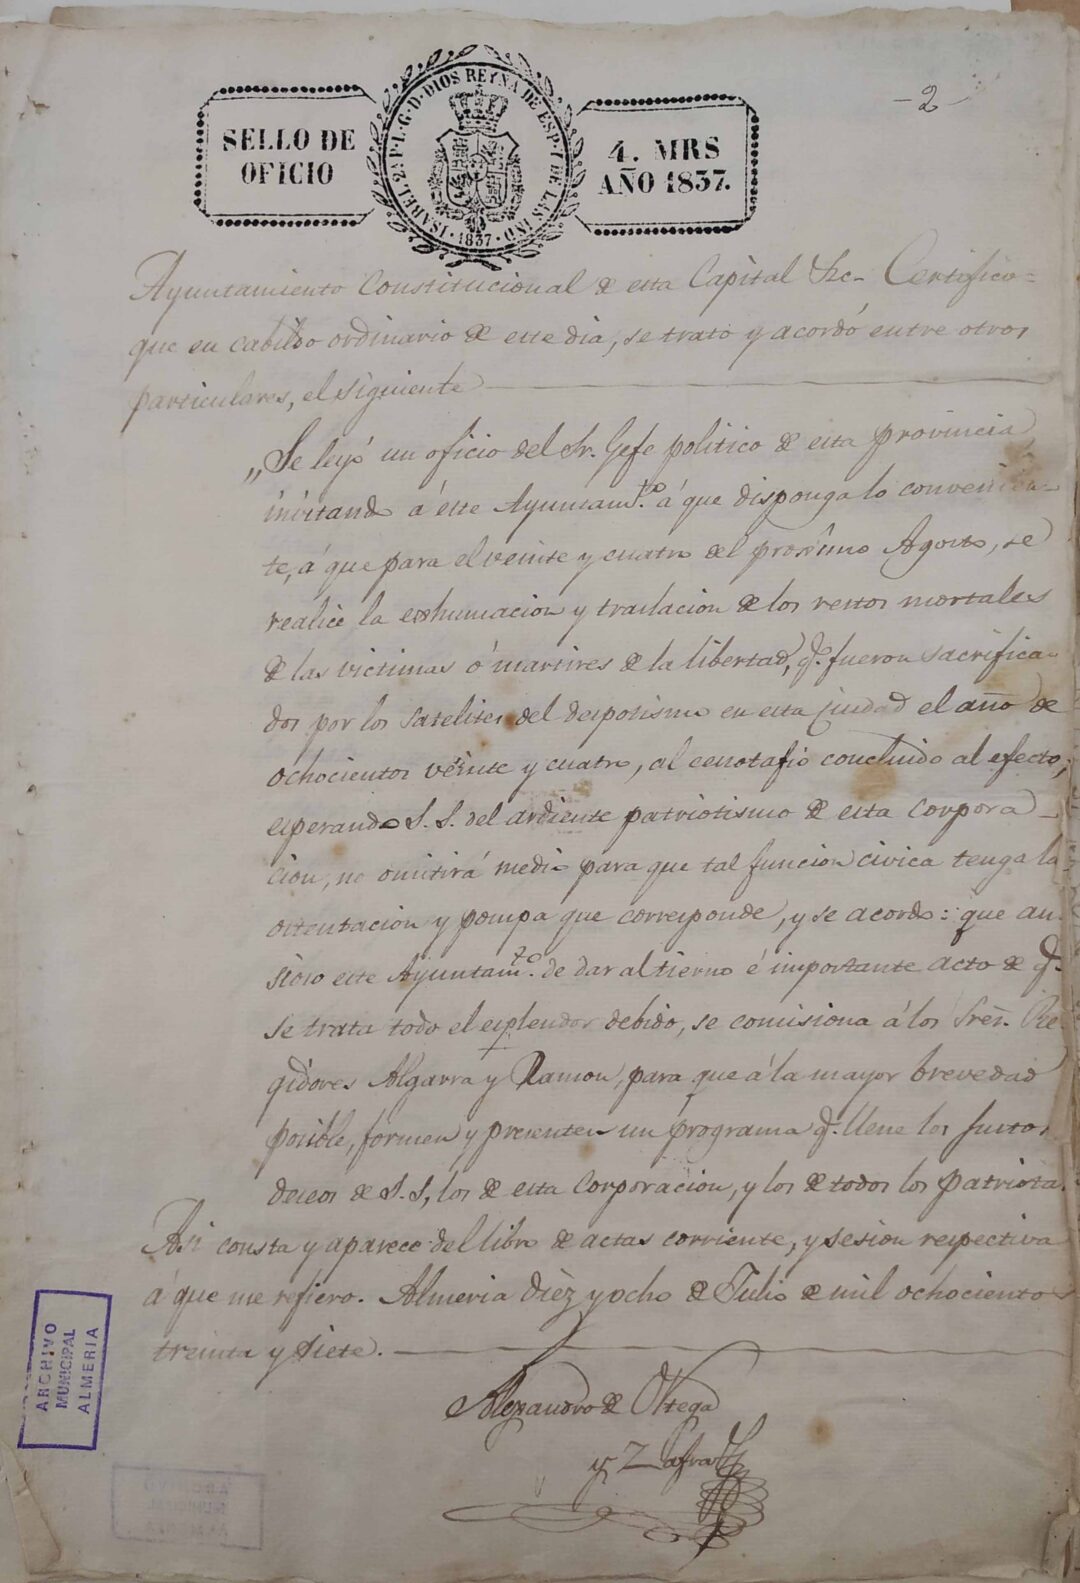 -2-
SELLO DE
OFICIO
ISABEL 2ª P. L. G. D. DIOS REYNA DE ESP. Y DE LAS IND.
1837
4. MRS
AÑO 1837.
Ayuntamiento Constitucional de esta Capital &c. Certifico=
que en cabildo ordinario de este dia, se trató y acordó entre otros
particulares, el siguiente
„Se leyó un oficio del Sr. Gefe politico de esta provincia
invitando á éste Ayuntamto. á que disponga lo convenien-
te, á que para el veinte y cuatro del procsimo Agosto, se
realice la exhumacion y traslacion de los restos mortales
de las victimas ó martires de la libertad, q. fueron sacrifica-
dos por los satelites del despotismo en esta Ciudad el año de
ochocientos veinte y cuatro, al cenotafio concluido al efecto;
esperando S. S. del ardiente patriotismo de esta Corpora-
cion, no omitirá medio para que tal funcion civica tenga la
ostentacion y pompa que corresponde, y se acordo: que an-
sioso este Ayuntamto. de dar al tierno é importante acto de q.
se trata todo el esplendor debido, se comisiona á los Sres. Re-
gidores Algarra y Ramon, para que á la mayor brevedad
posible, formen y presenten un programa q. llene los justos
deseos de S. S, los de esta Corporacion, y los de todos los patriotas.
Asi consta y aparece del libro de actas corriente, y sesion respectiva
á que me refiero. Almeria diez y ocho de Julio de mil ochocientos
treinta y siete.
Alejandro de Ortega
y Zafra
ARCHIVO
MUNICIPAL
ALMERIA
ARCHIVO
MUNICIPAL
ALMERIA